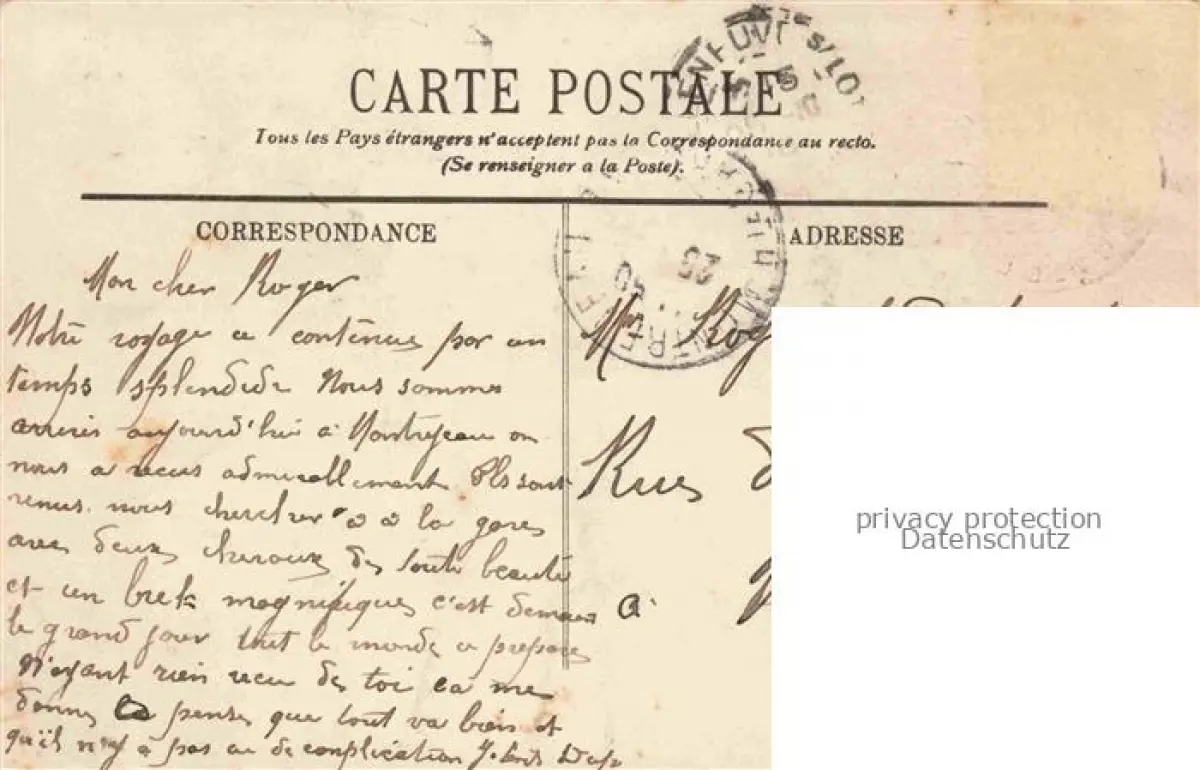 CARTE POSTALE
Tous les Pays étrangers n'acceptent pas la Correspondance au recto.
(Se renseigner a la Poste).
CORRESPONDANCE
ADRESSE
Mon cher Roger
Notre voyage a continue par un
temps splendide Nous sommes
arrives aujourd'hui a Montrejeau on
nous a recus admirablement Ils sont
venus nous chercher a la gare
avec deux chevaux de toute beauté
et un brek magnifiques c'est demain
le grand jour tout le monde a prepare
N'ayant rien recu de toi ca me
donne la pense que tout va bien et
qu'il n'y a pas eu de complication
Mr
Rue
à
privacy protection
Datenschutz